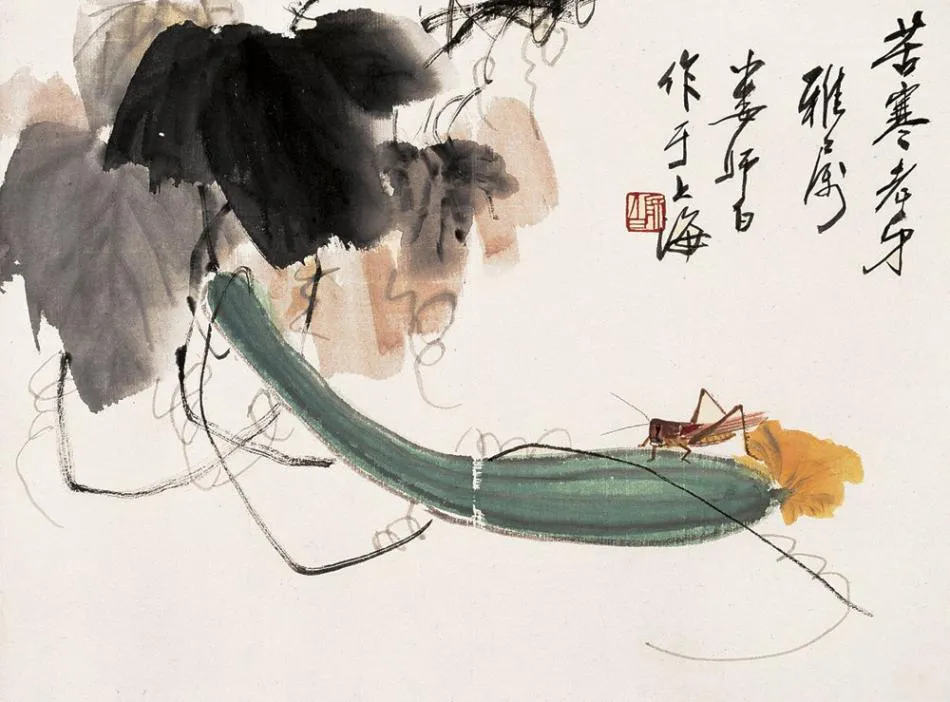 苦寒老弟
雅属
娄师白
作于上海